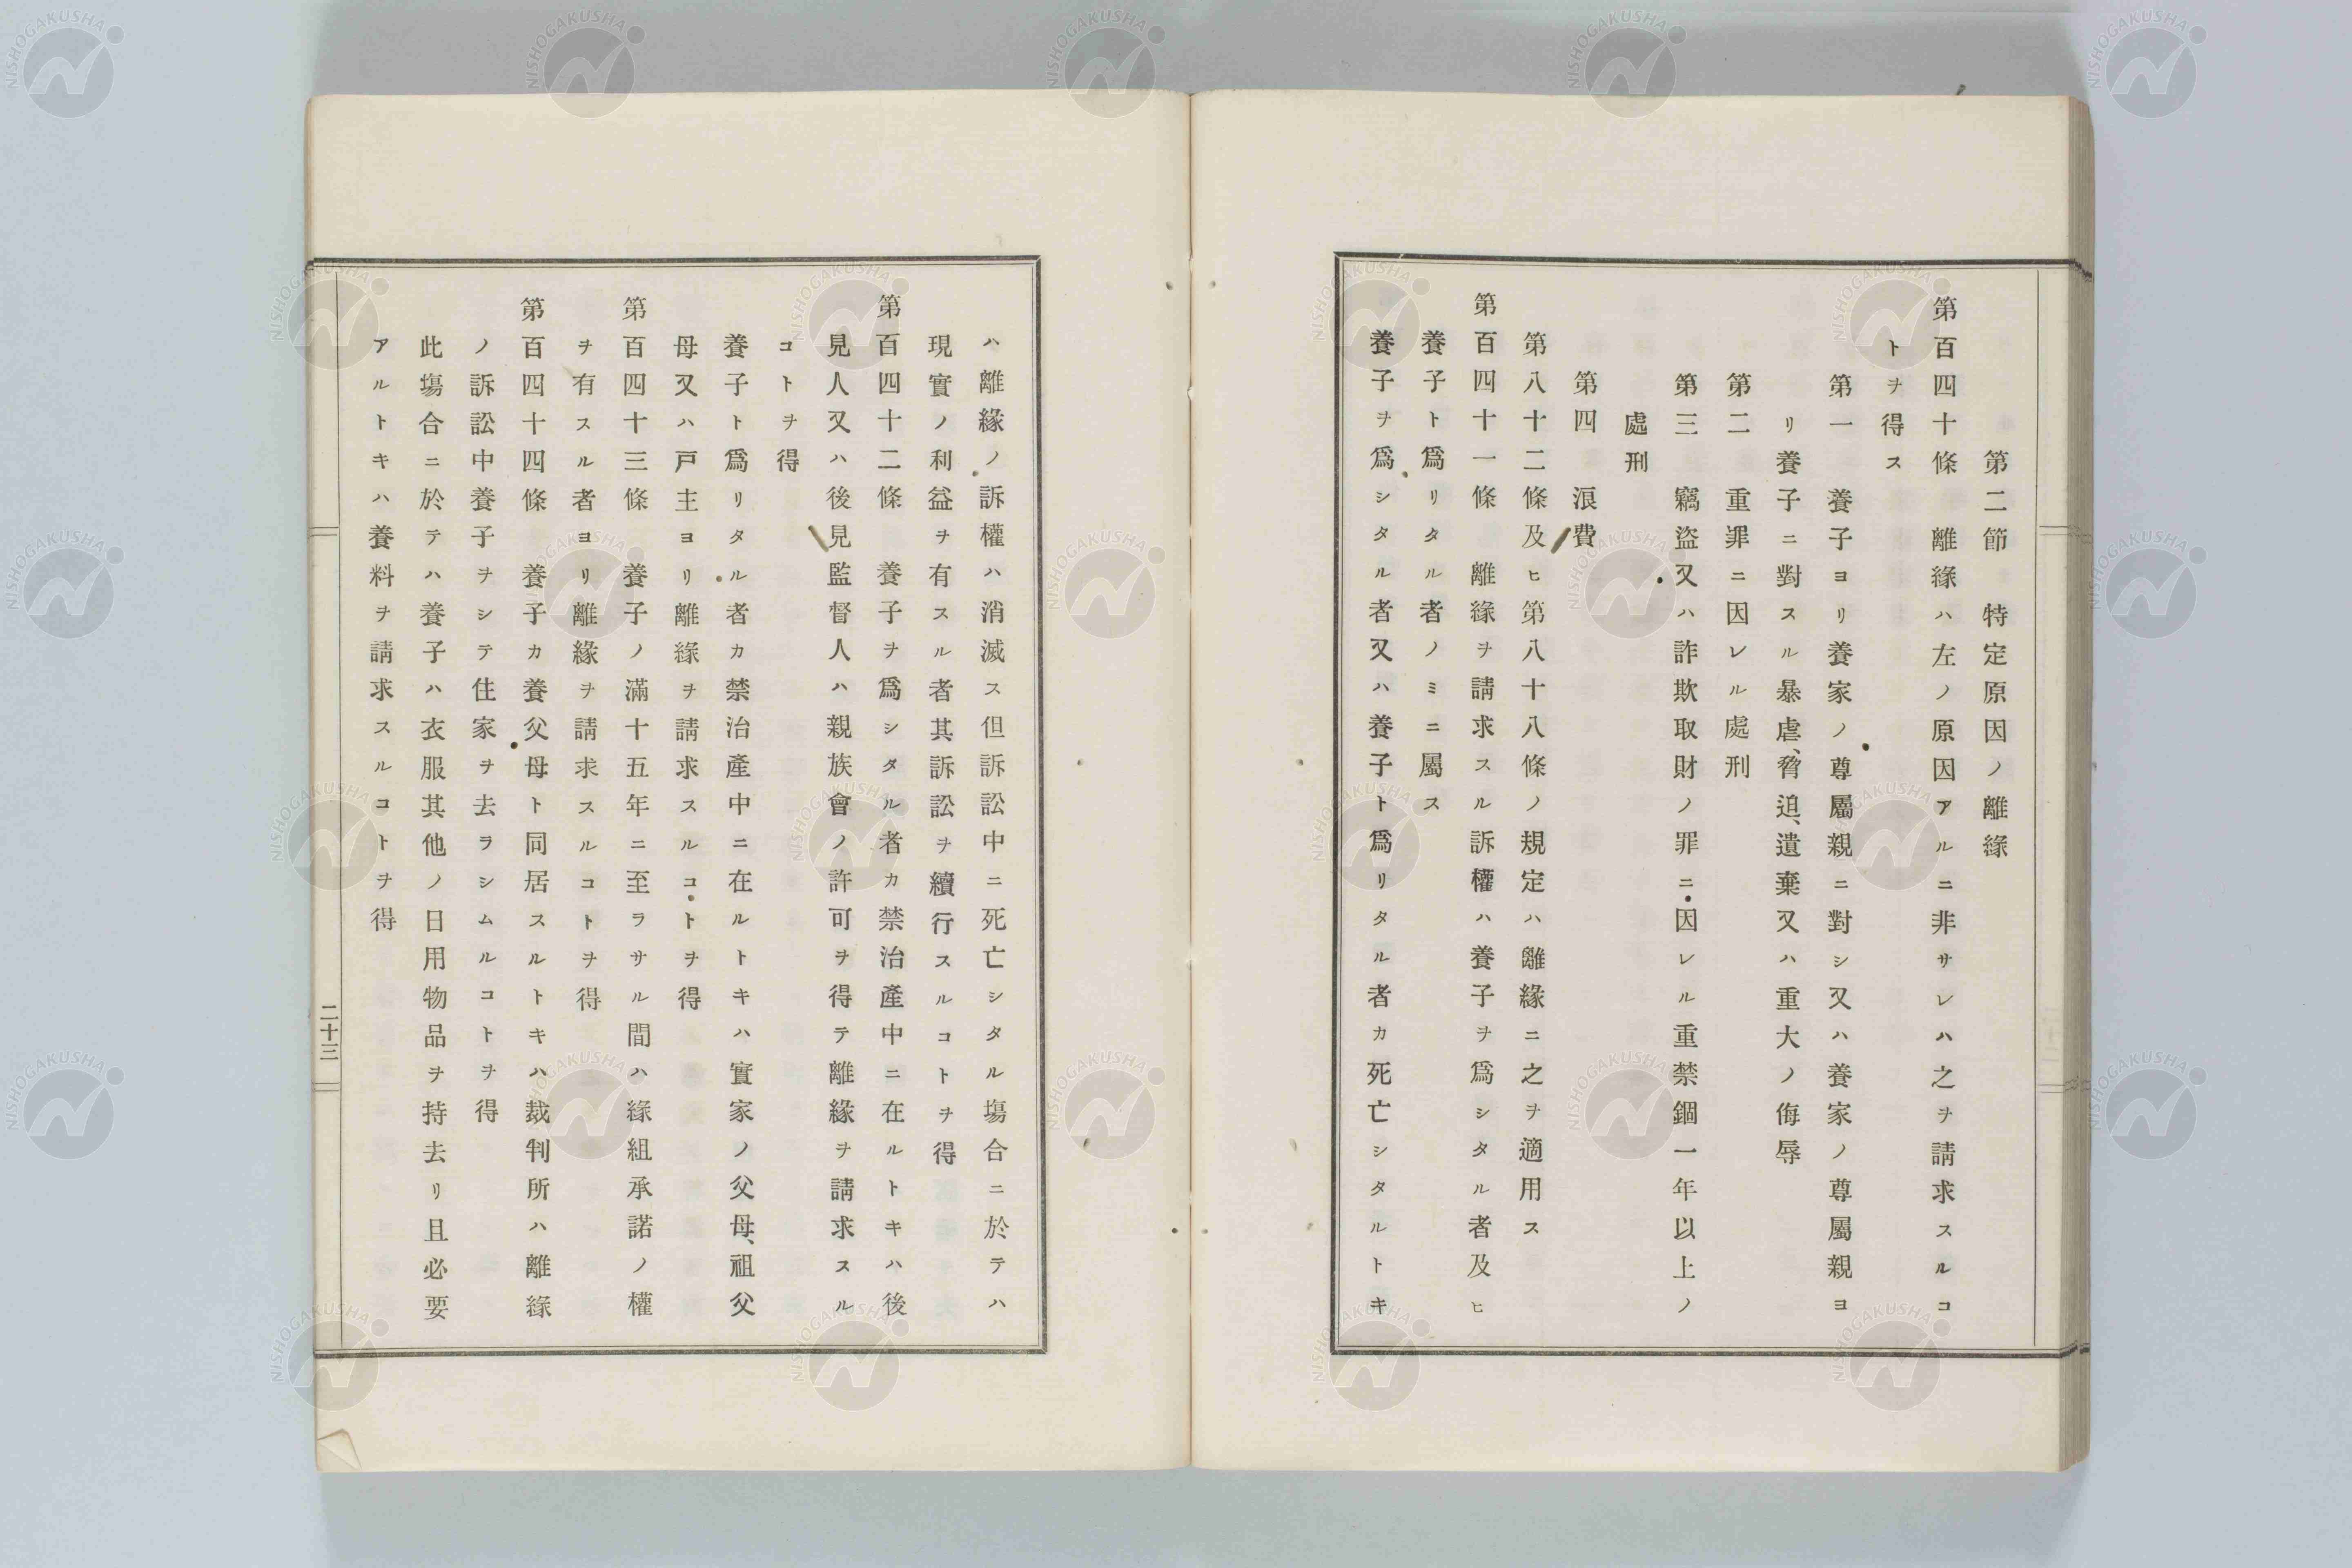 第二節 特定原因ノ離緣
第百四十條 離緣ハ左ノ原因アルニ非サレハ之ヲ請求スルコ
トヲ得ス
第一 養子ヨリ養家ノ尊屬親ニ對シ又ハ養家ノ尊屬親ヨ
リ養子ニ對スル暴虐、脅迫、遺棄又ハ重大ノ侮辱
第二 重罪ニ因レル處刑
第三 竊盜又ハ詐欺取財ノ罪ニ因レル重禁錮一年以上ノ
處刑
第四 浪費
第八十二條及ヒ第八十八條ノ規定ハ離緣ニ之ヲ適用ス
第百四十一條 離緣ヲ請求スル訴權ハ養子ヲ爲シタル者及ヒ
養子ト爲リタル者ノミニ屬ス
養子ヲ爲シタル者又ハ養子ト爲リタル者カ死亡シタルトキ
ハ離緣ノ訴權ハ消滅ス但訴訟中ニ死亡シタル塲合ニ於テハ
現實ノ利益ヲ有スル者其訴訟ヲ續行スルコトヲ得
第百四十二條 養子ヲ爲シタル者カ禁治產中ニ在ルトキハ後
見人又ハ後見監督人ハ親族會ノ許可ヲ得テ離緣ヲ請求スル
コトヲ得
養子ト爲リタル者カ禁治產中ニ在ルトキハ實家ノ父母、祖父
母又ハ戸主ヨリ離緣ヲ請求スルコトヲ得
第百四十三條 養子ノ滿十五年ニ至ラサル間ハ緣組承諾ノ權
ヲ有スル者ヨリ離緣ヲ請求スルコトヲ得
第百四十四條 養子カ養父母ト同居スルトキハ裁判所ハ離緣
ノ訴訟中養子ヲシテ住家ヲ去ラシムルコトヲ得
此塲合ニ於テハ養子ハ衣服其他ノ日用物品ヲ持去リ且必要
アルトキハ養料ヲ請求スルコトヲ得
二十三
NISHOGAKUSHA